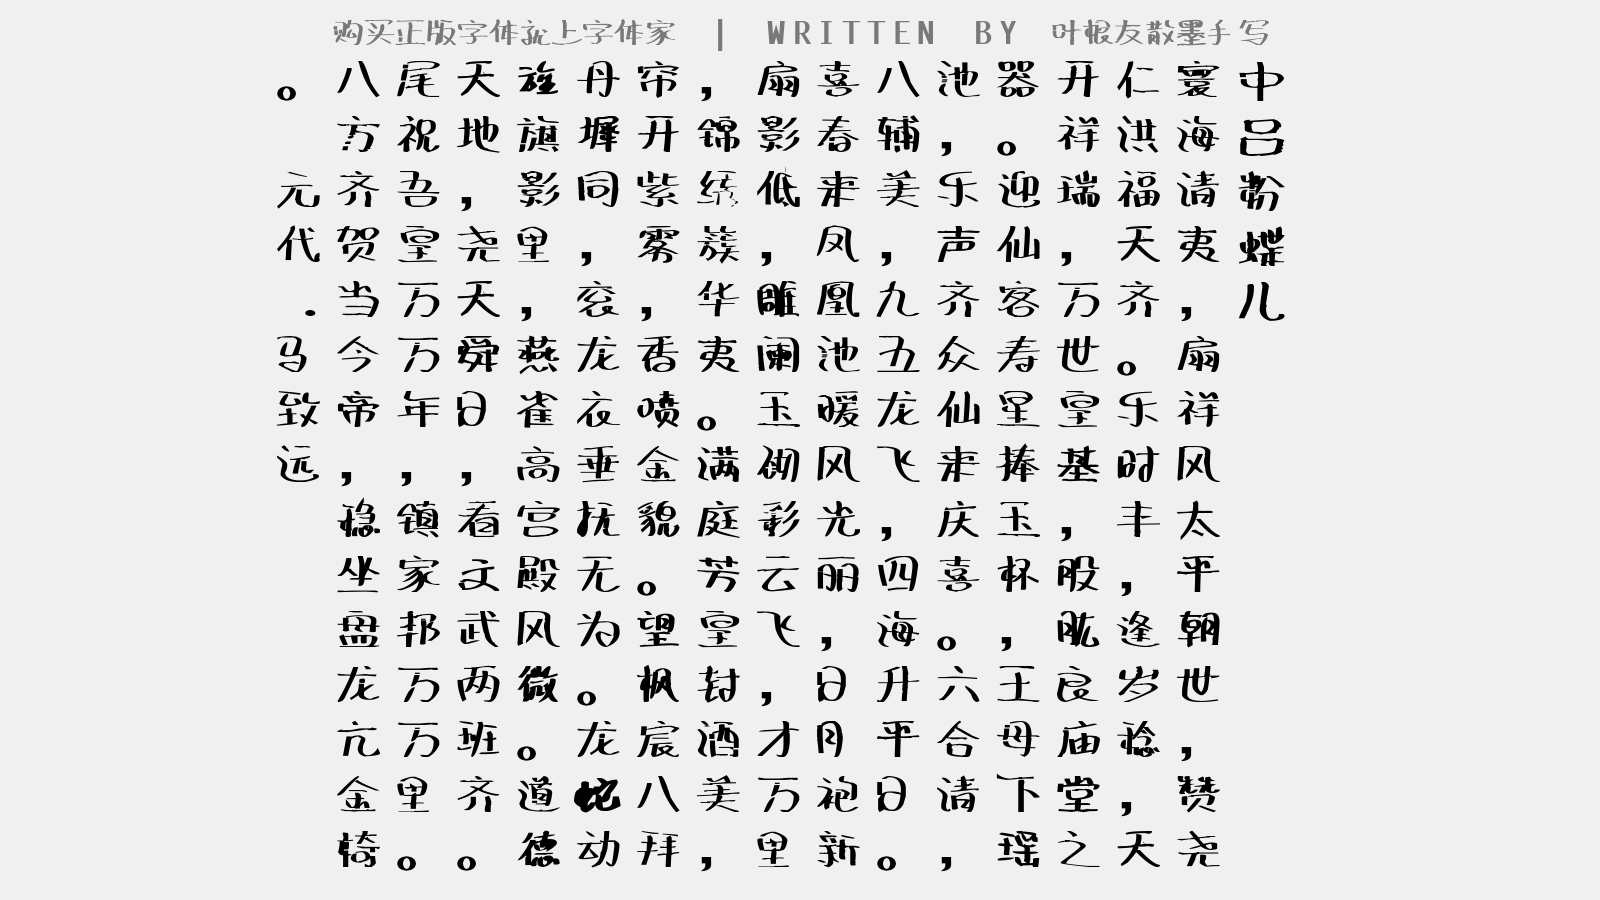 购买正版字体就上字体家 | WRITTEN BY 叶根友散墨手写
中吕粉蝶儿
寰海清夷，扇祥风太平朝世，赞尧
仁洪福天齐。乐时丰，逢岁稔，天
开祥瑞，万世皇基，股肱良庙堂之
器。迎仙客寿星捧玉杯，王母下瑶
池，乐声齐众仙来庆喜。六合清，
八辅美，九五龙飞，四海升平日。
喜春来凤凰池暖风光丽，日月袍新
扇影低，雕阑玉砌彩云飞，才万里
，锦绣簇华夷。满庭芳皇封酒美，
帘开紫雾，香喷金貌。望枫宸八拜
丹墀同，衮龙衣垂抚无为。龙蛇动
旌旗影里，燕雀高宫殿风微。道德
天地，尧天舜日，看文武两班齐。
尾祝吾皇万万年，镇家邦万万里。
八方齐贺当今帝，稳坐盘龙亢金椅
。 元代.马致远